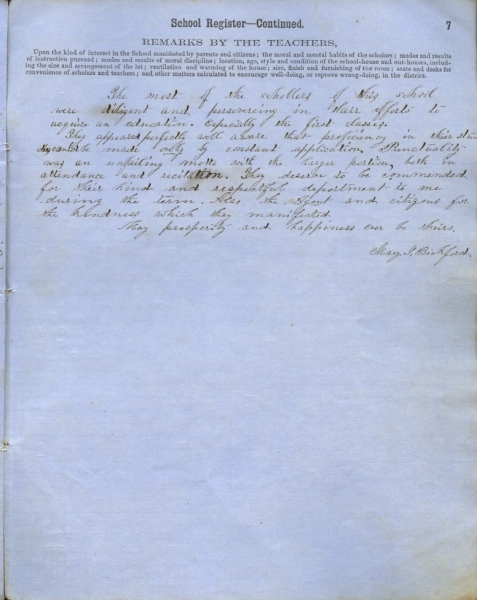 School Register—Continued.
7
REMARKS BY THE TEACHERS,
Upon the kind of interest in the School manifested by parents and citizens; the moral and mental habits of the scholars; modes and results
of instruction pursued; modes and results of moral discipline; location, age, style and condition of the school-house and out-houses, includ-
ing the size and arrangement of the lot; ventilation and warming of the house; size, finish and furnishing of the room; seats and desks for
convenience of scholars and teachers; and other matters calculated to encourage well-doing, or reprove wrong-doing, in the district.
The most of the schollers of this school
were diligent and persevering in their efforts to
acquire an education. Especially the first classes.
They appeared perfectly well aware that proficiency in their stu
dies could be made only by constant application. Punctuality
was an unfailing motto with the larger portion, both in
attendance and recitation. They deserve to be commended
for their kind and respectful deportment to me
during the term. Also the Agent and citizens for
the kindness which they manifested.
May prosperity and happiness ever be theirs.
Mary J. Bickford.